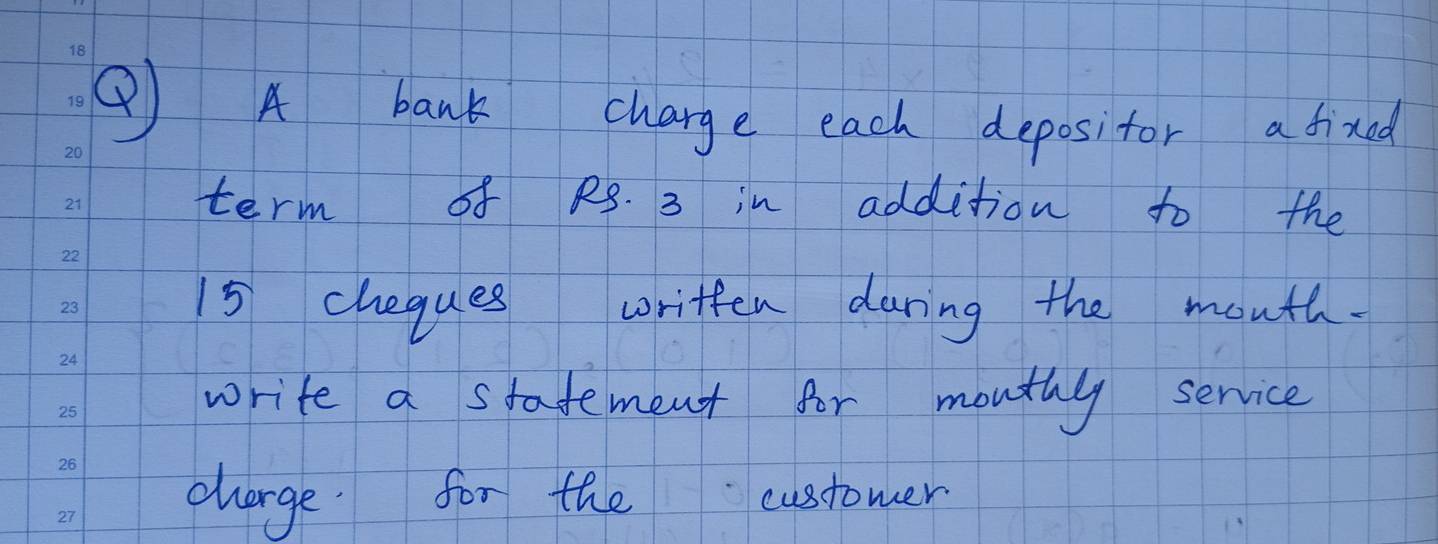 17
18
19 Q) A bank charge each depositor a fixed
20
21 term of Rs. 3 in addition to the
22
23 15 cheques written during the month.
24
25 write a statement for monthly service
26
27 cherge. for the customer.